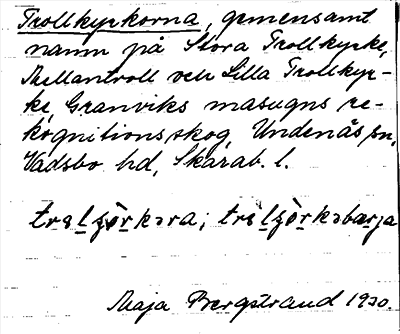 Trollkyrkorna, gemensamt
namn på Stora Trollkyrke,
Mellantroll och Lilla Trollkyr-
ke, Granviks masugns re-
kognitionsskog, Undenäs sn,
Vadsbo hd, Skarab. l.
Maja Bergstrand 1930.